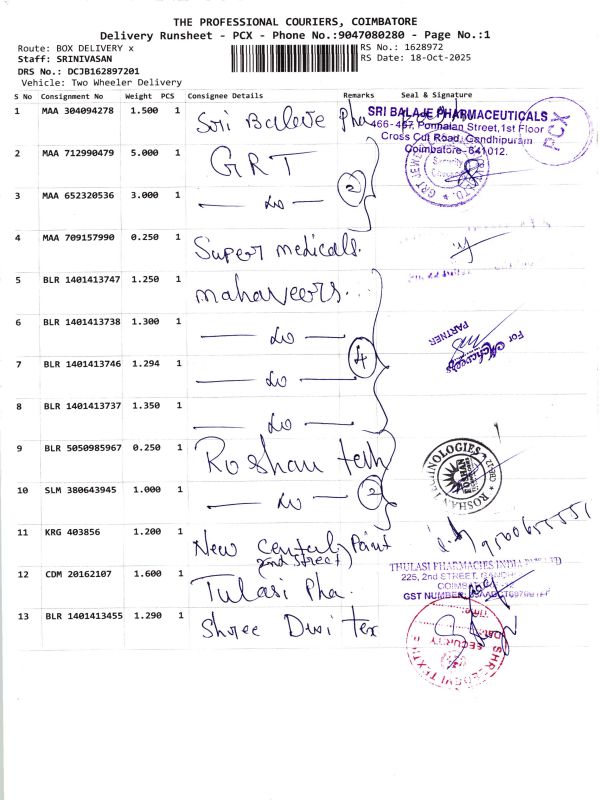 THE PROFESSIONAL COURIERS, COIMBATORE
Delivery Runsheet - PCX - Phone No.:9047080280 - Page No.:1
Route: BOX DELIVERY x
RS No.: 1628972
Staff: SRINIVASAN
RS Date: 18-Oct-2025
DRS No.: DCJB162897201
Vehicle: Two Wheeler Delivery
S No Consignment No Weight PCS Consignee Details Remarks Seal & Signature
1 MAA 304094278 1.500 1 Sri Balaje Pha
SRI BALAJE PHARMACEUTICALS
466-467, Ponnaian Street,1st Floor
Cross Cut Road, Gandhipuram
Coimbatore-641012.
PCX
2 MAA 712990479 5.000 1 GRT
GRT JEWELLERS
Security
3 MAA 652320536 3.000 1 — do — 2
4 MAA 709157990 0.250 1 Super medicals.
5 BLR 1401413747 1.250 1 mahaveers.
6 BLR 1401413738 1.300 1 — do —
For
PARTNER
7 BLR 1401413746 1.294 1 — do — 4
8 BLR 1401413737 1.350 1 — do —
9 BLR 5050985967 0.250 1 Roshan tech
ROSHAN TECHNOLOGIES
10 SLM 380643945 1.000 1 — do — 2
11 KRG 403856 1.200 1 New central Paint
(2nd street)
12 CDM 20162107 1.600 1 Tulasi Pha.
THULASI PHARMACIES INDIA PVT LTD
225, 2nd STREET, GANDHI
COIMBATORE
GST NUMBER:
13 BLR 1401413455 1.290 1 Shree Devi Tex
SECURITY